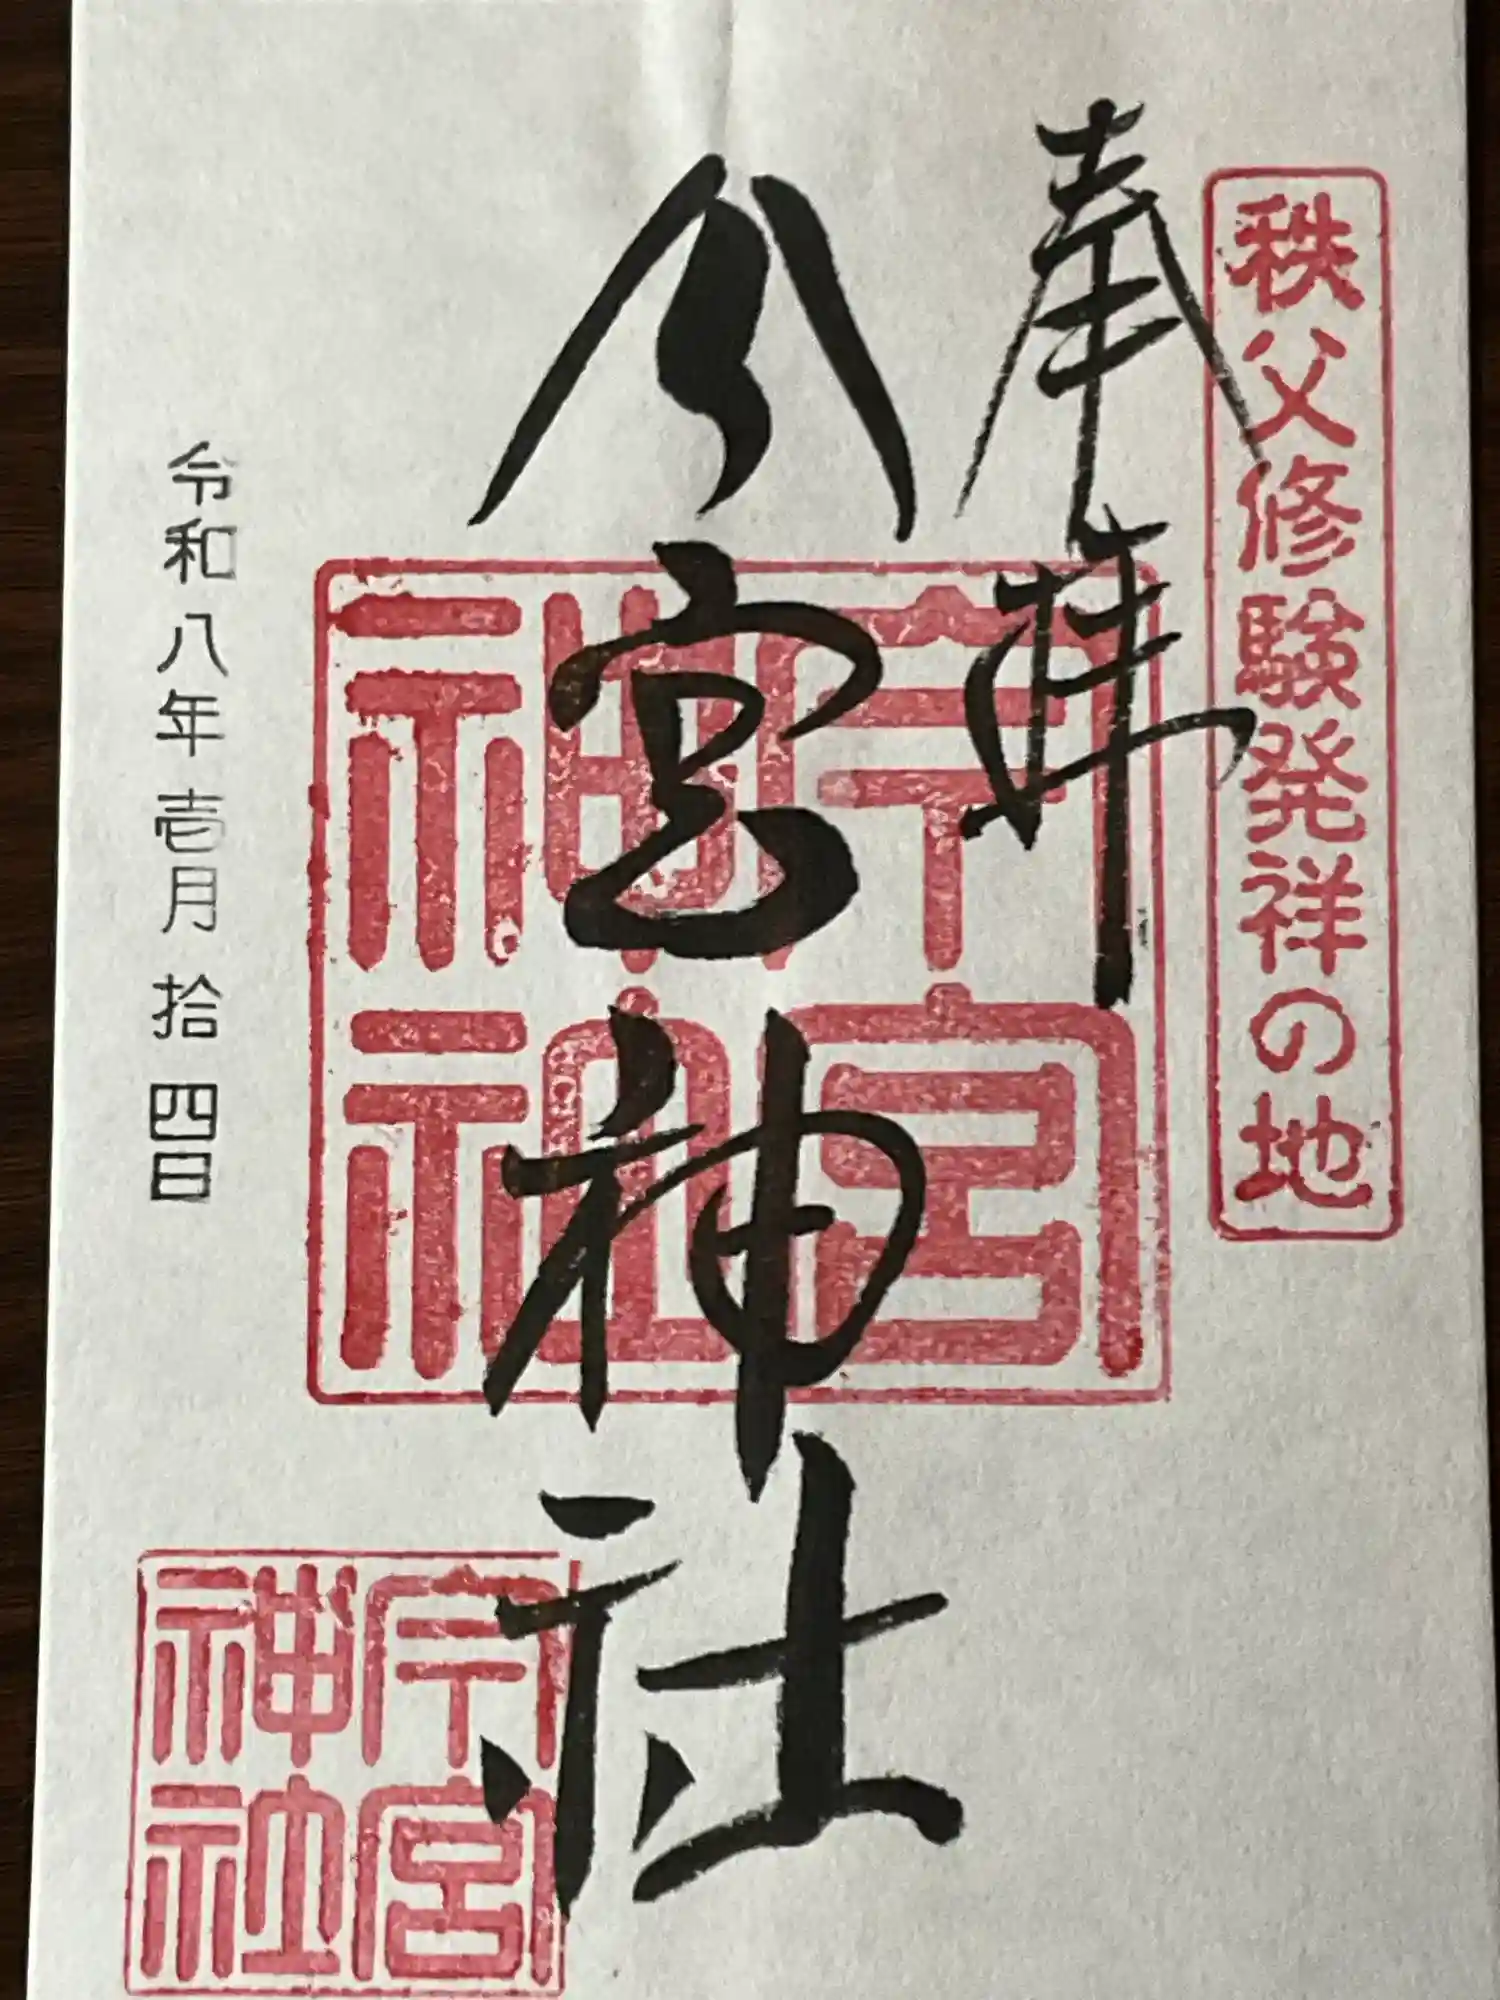 秩父修験発祥の地
奉拝
今宮神社
今宮神社
令和八年壱月拾四日
今宮神社